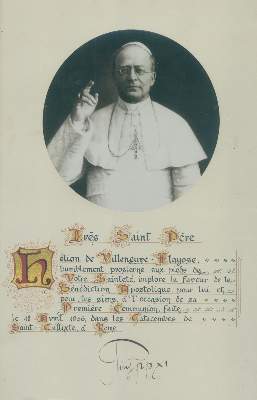 Très Saint Père
Hélion de Villeneuve-Flayosc
humblement prosterné aux pieds de
Votre Sainteté, implore la faveur de la
Bénédiction Apostolique pour lui et
pour les siens, à l'occasion de sa
Première Communion, faite
le 18 Avril 1930, dans les Catacombes de
Saint Callixte, à Rome